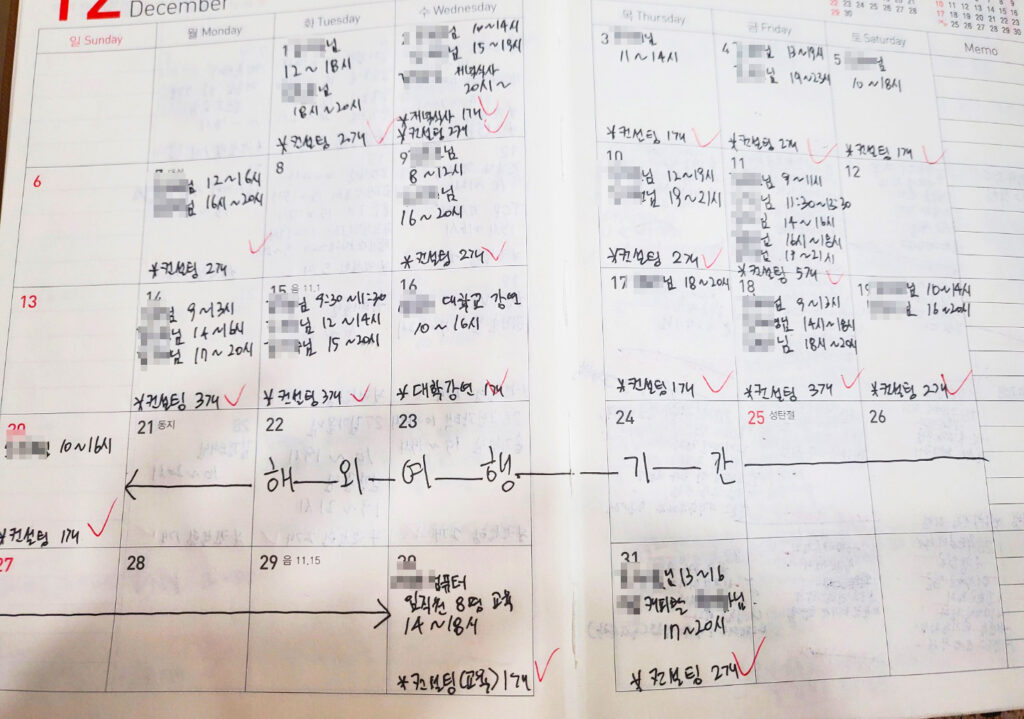 12 December
일 Sunday
월 Monday
화 Tuesday
수 Wednesday
목 Thursday
금 Friday
토 Saturday
Memo
1 님
12~18시
님
18시~20시
*컨설팅 2개
10~14시
15~19시
저녁식사
20시~
*저녁식사 1개
*컨설팅 2개
3 님
11~14시
*컨설팅 1개
4
님 19~23시
*컨설팅 2개
5 님
10~18시
*컨설팅 1개
6
님 12~16시
님 16시~20시
*컨설팅 2개
8
9 님
8~12시
님
16~20시
*컨설팅 2개
10
님 12~19시
님 19~21시
*컨설팅 2개
11
님 9~11시
님 11:30~13:30
님 14~16시
님 16시~18시
님 19~21시
*컨설팅 5개
12
13
님 9~13시
님 14~16시
님 17~20시
*컨설팅 3개
15 음 11.1
님 9:30~11:30
님 12~14시
님 15~20시
*컨설팅 3개
16
대학교 강연
10~16시
*대학강연 1개
17 님 18~20시
*컨설팅 1개
18
님 9~13시
님 14시~18시
님 18시~20시
*컨설팅 3개
19 님 10~14시
님 16~20시
*컨설팅 2개
20
님 10~16시
*컨설팅 1개
21 동지
22
23
24
25 성탄절
26
해외여행기간
27
28
29 음 11.15
30
컴퓨터
임직원 8명 교육
14~18시
*컨설팅(교육) 1개
31
님 13~16
커피빈 님
17~20시
*컨설팅 2개